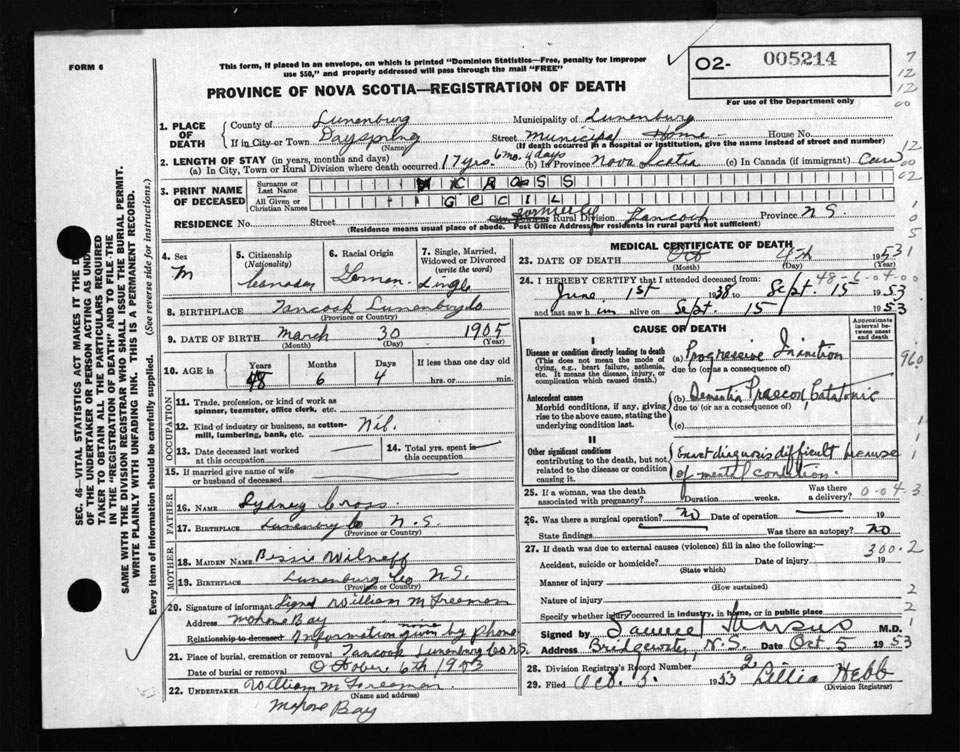 FORM 6
This form, if placed in an envelope, on which is printed "Dominion Statistics—Free, penalty for improper
use $50," and properly addressed will pass through the mail "FREE"
O2- 005214
For use of the Department only
PROVINCE OF NOVA SCOTIA—REGISTRATION OF DEATH
1. PLACE OF DEATH
County of Lunenburg Municipality of Lunenburg
If in City or Town Dayspring Street Municipal Home House No.
(Name) (If death occurred in a hospital or institution, give the name instead of street and number)
2. LENGTH OF STAY (in years, months and days)
(a) In City, Town or Rural Division where death occurred 17 yrs. 6 mo. 4 days (b) In Province Nova Scotia (c) In Canada (if immigrant)
3. PRINT NAME OF DECEASED
Surname or Last Name CROSS
All Given or Christian Names CECIL
RESIDENCE No. Street Formerly Rural Division Tancook Province N S.
(Residence means usual place of abode. Post Office Address for residents in rural parts not sufficient)
4. Sex M
5. Citizenship (Nationality) Canadan
6. Racial Origin German
7. Single, Married, Widowed or Divorced (write the word) Single
8. BIRTHPLACE Tancook Lunenburg Co
(Province or Country)
9. DATE OF BIRTH March 30 1905
(Month) (Day) (Year)
10. AGE in Years 48 Months 6 Days 4 If less than one day hrs. or min.
OCCUPATION
11. Trade, profession, or kind of work as spinner, teamster, office clerk, etc.
12. Kind of industry or business, as cotton-mill, lumbering, bank, etc. Nil.
13. Date deceased last worked at this occupation
14. Total yrs. spent in this occupation
15. If married give name of wife or husband of deceased
FATHER
16. Name Sydney Cross
17. Birthplace Lunenburg Co N.S
(Province or Country)
MOTHER
18. MAIDEN NAME Bessie Wilneff
19. BIRTHPLACE Lunenburg Co N.S.
(Province or Country)
20. Signature of informant Signed William M Freeman
Address Mahone Bay
Relationship to deceased none Information given by phone
21. Place of burial, cremation or removal Tancook Lunenburg Co N.S.
Date of burial or removal October 6th 1953
22. UNDERTAKER William M Freeman.
(Name and address)
Mahone Bay
MEDICAL CERTIFICATE OF DEATH
23. DATE OF DEATH Oct 4th 1953
(Month) (Day) (Year)
24. I HEREBY CERTIFY that I attended deceased from:
48-6-04-0
June 1st 1938 to Sept. 15 1953
and last saw him alive on Sept. 15 1953
CAUSE OF DEATH
Approximate interval between onset and death
I
Disease or condition directly leading to death
(This does not mean the mode of dying, e.g., heart failure, asthenia, etc. It means the disease, injury, or complication which caused death.)
(a) Progressive Inanition
due to (or as a consequence of)
Antecedent causes
Morbid conditions, if any, giving rise to the above cause, stating the underlying condition last.
(b) Dementia Praecox, Catatonic
due to (or as a consequence of)
(c)
II
Other significant conditions
contributing to the death, but not related to the disease or condition causing it.
Exact diagnosis difficult because
of mental condition.
25. If a woman, was the death associated with pregnancy? Duration weeks. Was there a delivery? 0-04-3
26. Was there a surgical operation? No Date of operation 19
State findings Was there an autopsy? No
27. If death was due to external causes (violence) fill in also the following:—
300.2
Accident, suicide or homicide? Date of injury 19
(State which)
Manner of injury
(How sustained)
Nature of injury
Specify whether injury occurred in industry, in home, or in public place
Signed by Samuel Marcus M.D.
Address Bridgewater, N.S. Date Oct. 5 1953
28. Division Registrar's Record Number 2
29. Filed Oct. 5. 1953 Lillia Hebb
(Division Registrar)
SEC. 46—VITAL STATISTICS ACT MAKES IT THE D
OF THE UNDERTAKER OR PERSON ACTING AS UND
TAKER TO OBTAIN ALL THE PARTICULARS REQUIRED
IN THE "REGISTRATION OF DEATH" AND TO FILE THE
SAME WITH THE DIVISION REGISTRAR WHO SHALL ISSUE THE BURIAL PERMIT.
WRITE PLAINLY WITH UNFADING INK. THIS IS A PERMANENT RECORD.
Every item of information should be carefully supplied. (See reverse side for instructions.)